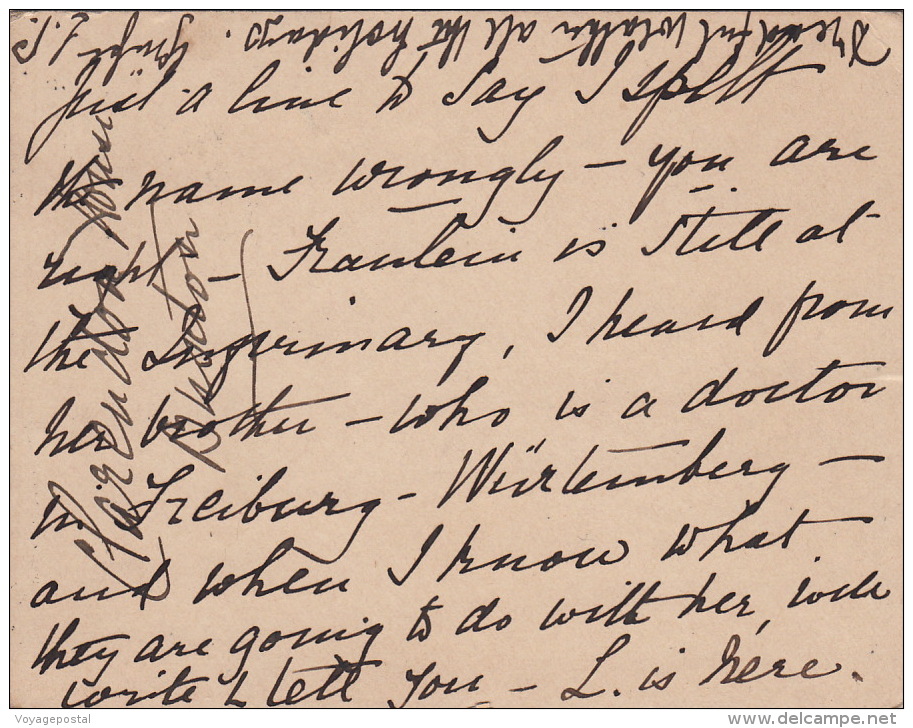 Just a line to say I spelt
the name wrongly – you are
right – Fraulein is still at
the Infirmary, I heard from
her brother – who is a doctor
in Freiburg – Würtemberg –
and when I know what
they are going to do with her, will
write & tell you – L. is here.
Dreadful weather all the holidays.
Clarendon
Voyagepostal
delcampe.net